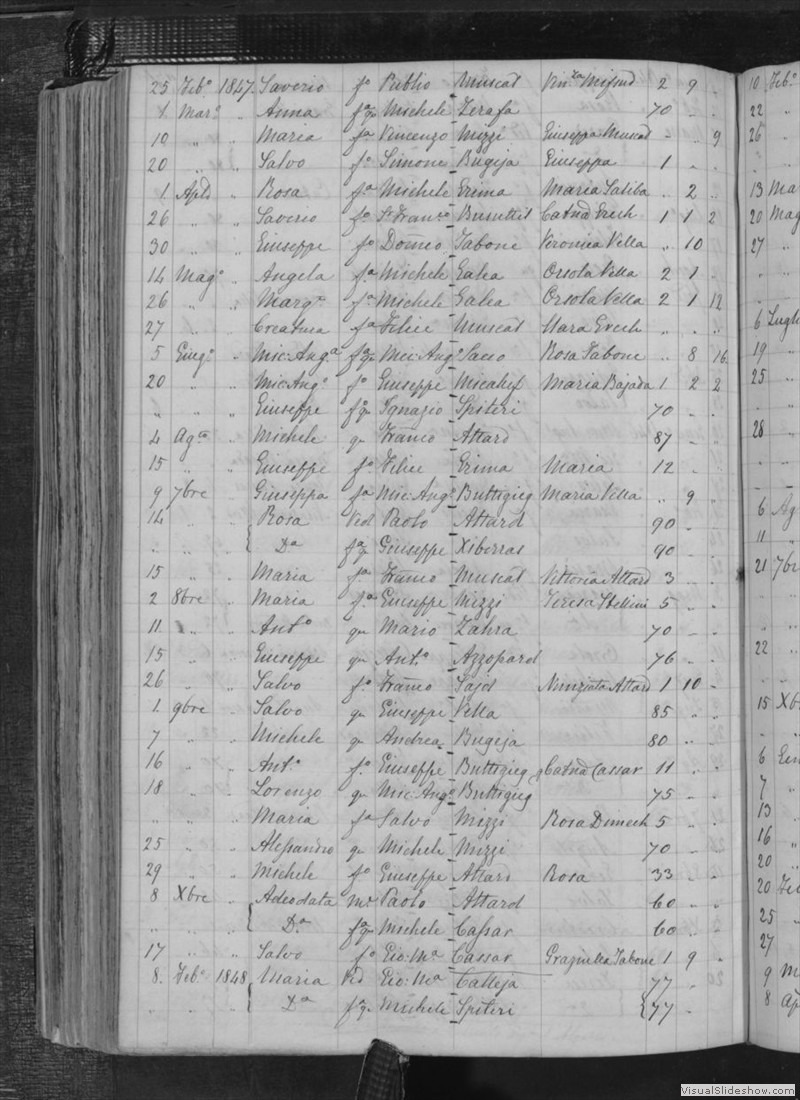 25 Feb.o 1847 Saverio fo Publio Muscat Vin.za Mifsud 2 9 "
1 Mar.o " Anna fa qm Michele Zerafa 70 " "
10 " " Maria fa Vincenzo Mizzi Giuseppa Muscat " " 9
20 " " Salvo fo Simone Bugeja Giuseppa 1 "
1 Aple " Rosa fa Michele Grima Maria Saliba " 2 "
26 " " Saverio fo Franco Busuttil Catna Grech 1 1 2
30 " " Giuseppe fo Domco Tabone Veronica Vella " 10
14 Mag.o " Angela fa Michele Galea Orsola Vella 2 1 "
26 " " Marg.a fa Michele Galea Orsola Vella 2 1 12
27 " " Creatura fa Felice Muscat Mara Grech " " "
5 Giug.o " Mic: Ang.a fa qm Mic: Ang.o Sacco Rosa Tabone " 8 16
20 " " Mic: Ang.o fo Giuseppe Micallef Maria Bajada 1 2 2
" " " Giuseppe fo qm Ignazio Spiteri 70 " "
4 Ag.to " Michele qm Franco Attard 87 "
15 " " Giuseppe fo Felice Grima Maria 12 "
9 7bre " Giuseppa fa Mic: Ang.o Buttigieg Maria Vella " 9 "
14 " " Rosa Ved Paolo Attard 90 "
" " " { Da fa qm Giuseppe Xiberras 90 "
15 " " Maria fa Franco Muscat Vittoria Attard 3 " "
2 8bre " Maria fa Giuseppe Mizzi Teresa Stellini 5 " "
11 " " Ant.o qm Mario Zahra 70 " "
15 " " Giuseppe qm Ant.o Azzopard 76 " "
26 " " Salvo fo Franco Sajd Nunziata Attard 1 10 "
1 9bre " Salvo qm Giuseppe Vella 85 " "
7 " " Michele qm Andrea Bugeja 80 " "
16 " " Ant.o fo Giuseppe Buttigieg Catna Cassar 11 " "
18 " " Lorenzo qm Mic: Ang.o Buttigieg 75 " "
" " " Maria fa Salvo Mizzi Rosa Dimech 5 " "
25 " " Alessandro qm Michele Mizzi 70 " "
29 " " Michele fo Giuseppe Attard Rosa 33 " "
8 Xbre " Adeodata Me Paolo Attard 60 " "
" " " { Da fa qm Michele Cassar 60 " "
17 " " Salvo fo Gio: Ma Cassar Graziulla Tabone 1 9 "
8 Feb.o 1848 Maria Ved Gio: Ma Calleja 77 "
" " " { Da fa qm Michele Spiteri { 77 "
10 Feb.o
22 "
26 "
13 Ma
20 Mag
27 "
6 Lugli
19 "
25 "
28 "
6 Ag
11 "
21 7bre
22 "
15 Xb
6
7 "
13 "
16 "
20 "
20 Fe
25 "
27
9 M
8 Ap
VisualSlideshow.com